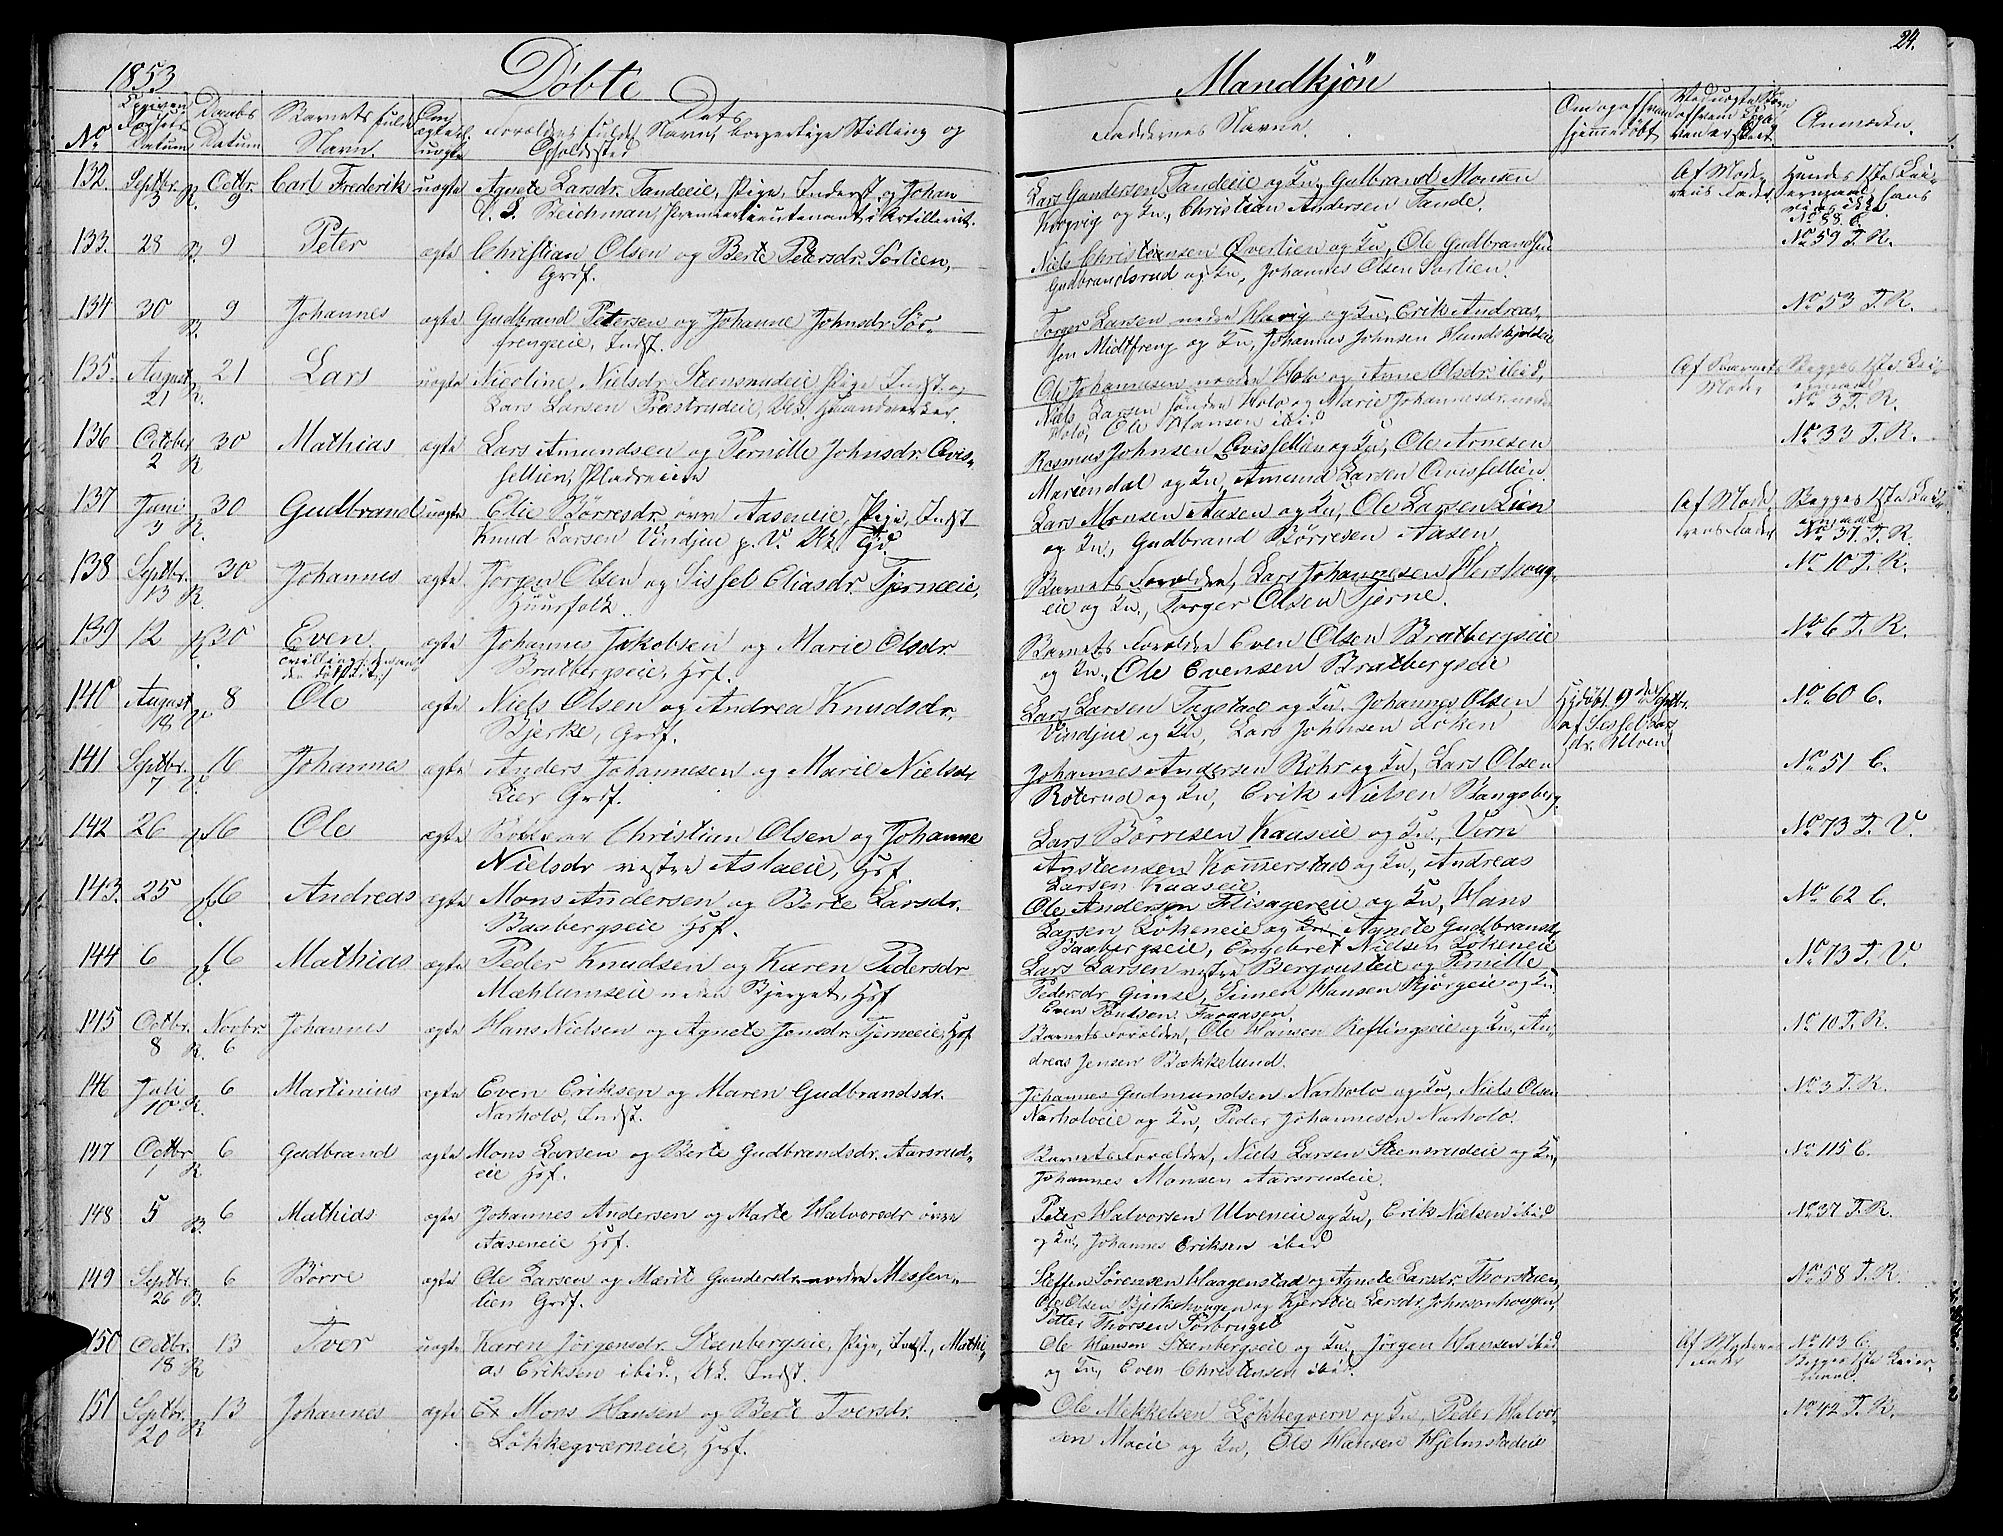 1853
Döbte
Mandkjön
24.
No
Datum
Daabs Datum
Barnets fulde Navn.
Om ægte el. uægte
Forældres fulde Navn, borgerlige Stilling og Opholdsted
Faddernes Navne.
Om og af hvem hjemmedöbt
Anmærkn.
132. Septbr. 3 R. Octbr. 9 Carl Frederik uægte Agnete Larsdr. Tandeeie, Pige, Inderst, og Johan
Steichman, Premierlieutenant i Artilleriet.
Lars Gundersen Tandeeie og Kn, Gulbrand Monsen
og Kn, Christian Andersen Tande.
Af Moderens Fader
133. 28 R. 9 Peter ægte Christian Olsen og Berte Petersdr. Sorlien,
Grdf.
Niels Christiansen Överlien og Kn, Ole Gudbrandsen
Gudbrandsrud og Kn, Johannes Olsen Sorlien.
No 59 T. R.
134 30 R. 9 Johannes ægte Gudbrand Petersen og Johanne Johnsdr. Sör-
frengseie, Indst.
Torger Larsen nedre og Kn, Erik Andreas-
sen Midtfreng og Kn, Johannes Johnsen Hundskjoldeie
No 53 T. R.
135. August 21 R. 21 Lars uægte Nicoline Nielsdr. Steensrudeie Pige Indst. og
Lars Larsen Præstrudeie, Uk. Haandverker.
Ole Johannesen nordre Holo og Anne Olsdr. ibid,
Niels Larsen söndre Holo og Marie Johannesdr. nordre
Holo, Ole Hansen ibid
Af Barnets Moder
No 3 T. R.
136 October 2 R 30 Mathias ægte Lars Amundsen og Pernille Johnsdr. Qvis-
sellien, Pladseeie
Rasmus Johnsen Qvissellien og Kn, Ole Arnesen
Mariendal og Kn, Amund Larsen Qvissellien.
No 33 T. R.
137 Juni 3 R. 30 Gudbrand uægte Elie Börresdr. övre Aaseneie, Pige, Indst
Knud Larsen Vindjue p. V. Uk. Tj.
Lars Monsen Aasen og Kn, Ole Larsen Lien
og Kn, Gudbrand Börresen Aasen.
Af Moderens Fader
No 37. T. R.
138 Septbr. 13 R. 30 Johannes ægte Jörgen Olsen og Sissel Eliasdr. Tjerneeie,
Huusfolk.
Barnets Forældre, Lars Johannesen
eie og Kn, Torger Olsen Tjerne.
No 10 T. R.
139 12 R. 30 Even. ægte Johannes Jakobsen og Marie Olsdr.
Bratbergseie, Hsf.
Barnets Forældre Even Olsen Bratbergseie
og Kn, Ole Evensen Bratbergseie
No 6 T. R.
140 August 18 V 8 Ole ægte Niels Olsen og Andrea Knudsdr.
Bjerke, Grdf.
Lars Larsen Fagstad og Kn. Johannes Olsen
Vindjue og Kn, Lars Johnsen Löken
No 60 C.
141 Septbr. 7 V. 16 Johannes ægte Anders Johannesen og Marie Nielsdr
Lier Grdf.
Johannes Andersen Röhr og Kn, Lars Olsen
Roterud og Kn, Erik Nielsen Bangsberg.
No 51 C.
142 26 V. 16 Ole ægte Christian Olsen og Johanne
Nielsdr vestre Aslaeie, Hsf.
Lars Börresen Kaaseie og Kn,
og Kn, Andreas
Larsen Kaaseie
No 73 T. V.
143. 25 V. 16 Andreas ægte Mons Andersen og Berte Larsdr.
Baabergseie Hsf.
Ole Andersen Flisageie og Kn, Hans
Larsen Lökeneie og Agnete Gudbrandsd.
Baabergseie, Engebret Nielsen Lökeneie
No 62 C.
144 6 V. 16 Mathias ægte Peder Knudsen og Karen Pedersdr
Mæhlumseie neden Bjerget, Hsf
Lars Larsen vestre og Pernille
Pedersdr. Gimse, Simen Hansen og Kn
Even
No 73 T. V.
145 Octbr. 8 R. Novbr. 6 Johannes ægte Hans Nielsen og Agnete Jonsdr. Tjerneeie, Hsf
Barnets Forældre, Ole Hansen Reflingseie og Kn, An-
dreas Jensen Bækkelund.
No 10 T. R.
146 Juli 10 R. 6 Martinius ægte Even Eriksen og Maren Gudbrandsdr.
Narholo, Indst.
Johannes Gudmundsen Narholo og Kn, Niels Olsen
Narholoeie og Kn, Peder Johannesen Narholo.
No 3 T. R.
147 Octbr. 1 R 6 Gudbrand ægte Mons Larsen og Berte Gudbrandsdr. Aarsrud-
eie Hsf.
Barnets Forældre, Niels Larsen Steensrudeie og Kn,
Johannes Monsen Aarsrudeie.
No 115 C.
148 5 R. 6 Mathias ægte Johannes Andersen og Marte Halvorsdr övre
Aaseneie Hsf.
Peter Halvorsen Ulveneie og Kn, Erik Nielsen ibid
og Kn, Johannes Eriksen ibid
No 37 T. R.
149 Septbr. 26 R. 6 Börre ægte Ole Larsen og Marit Gundersdr. nordre Messen-
lien Grdf.
Steffen Sörensen Haagenstad og Agnete Larsdr. Thorstuen,
Ole Olsen Bjerkehougen og Kjersti Larsdr. Johnsonhougen,
Petter Thorsen Sorbruget
No 58 T. R.
150 Octbr. 18 R 13 Iver uægte Karen Jörgensdr. Steenbergseie, Pige, Indst., Mathi-
as Eriksen ibid., Uk. Indst.
Ole Hansen Steenbergseie og Kn, Jörgen Hansen ibid
og Kn, Even Christiansen ibid.
Af Moderens Fader
No 103 C.
151 Septbr. 20 R 13 Johannes ægte Mons Hansen og Berte Iversdr.
Lökkegværneie, Hsf.
Ole Mekkelsen Lökkegvern og Kn, Peder Halvor-
sen Moeie og Kn, Ole Hansen Hjelmstadeie
No 42 T. R.